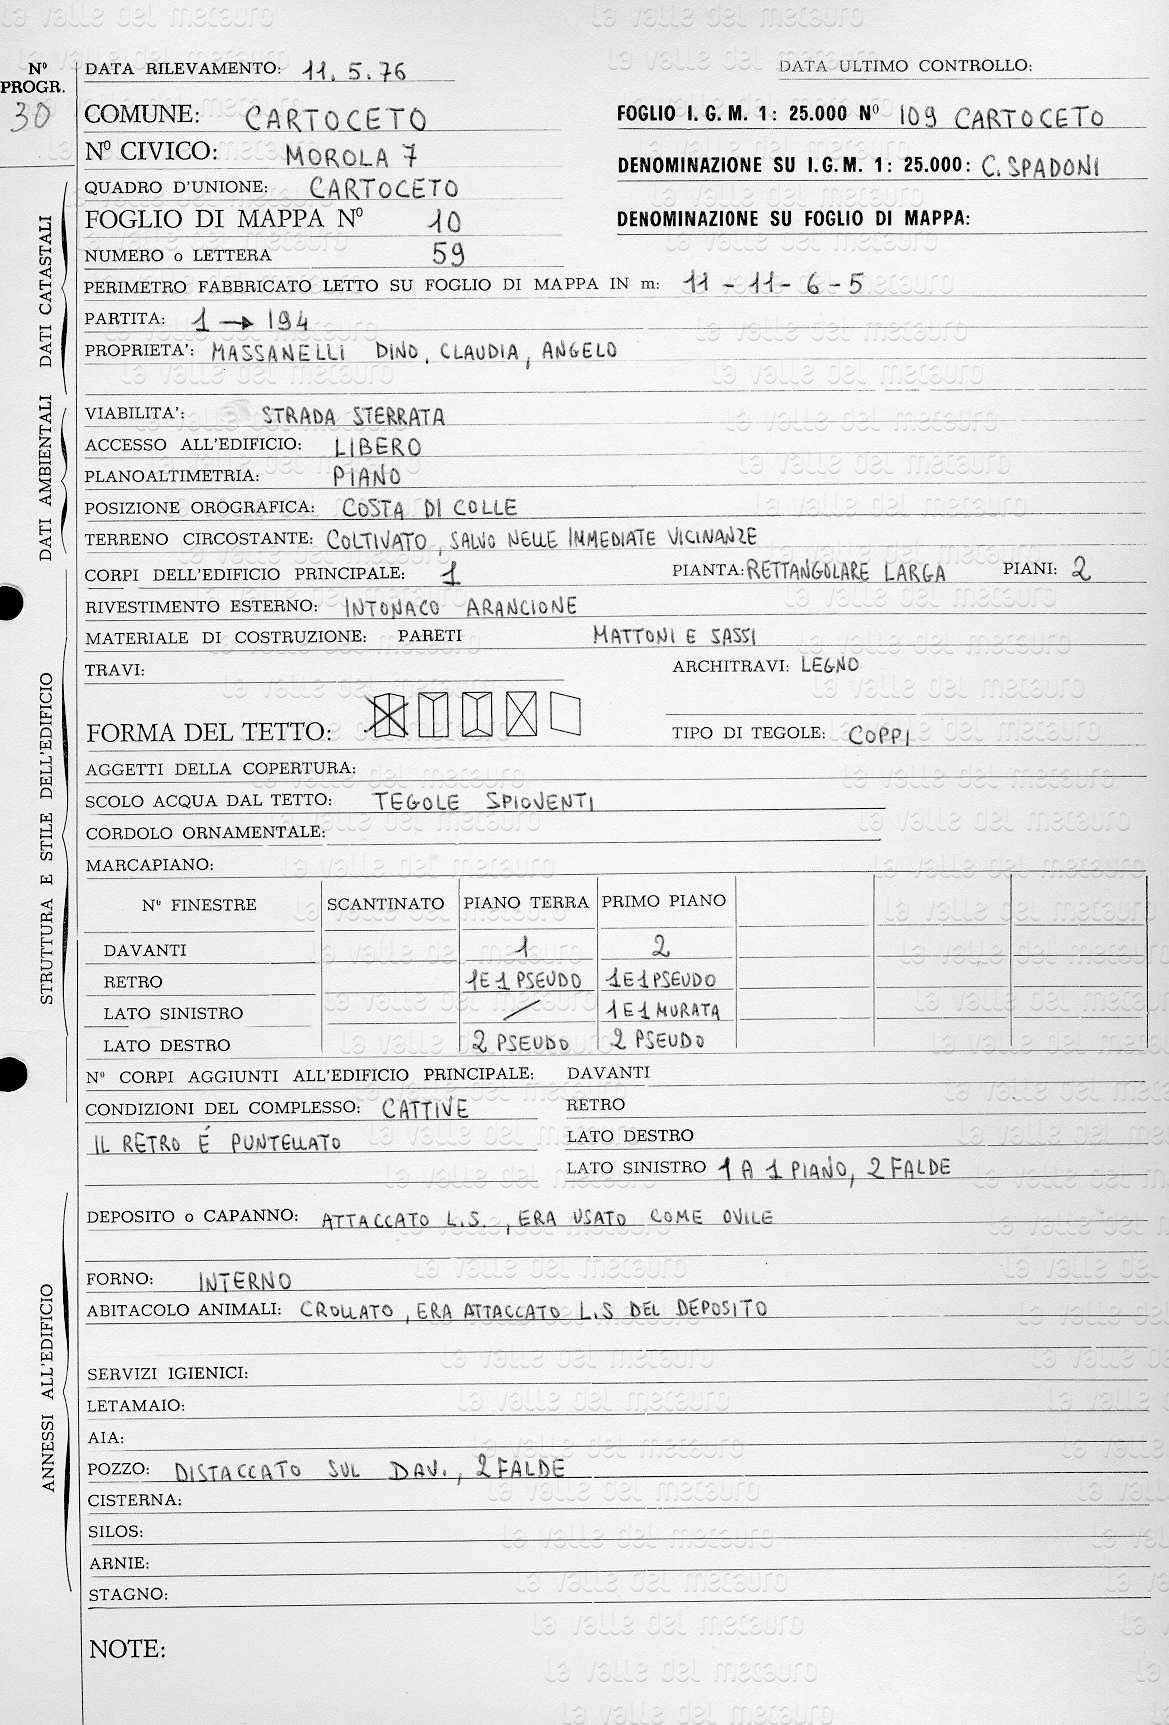 Nº PROGR.
30
DATA RILEVAMENTO: 11.5.76
DATA ULTIMO CONTROLLO:
COMUNE: CARTOCETO
FOGLIO I.G.M. 1: 25.000 Nº 109 CARTOCETO
Nº CIVICO: MOROLA 7
DENOMINAZIONE SU I.G.M. 1: 25.000: C. SPADONI
QUADRO D'UNIONE: CARTOCETO
FOGLIO DI MAPPA Nº 10
DENOMINAZIONE SU FOGLIO DI MAPPA:
NUMERO o LETTERA 59
PERIMETRO FABBRICATO LETTO SU FOGLIO DI MAPPA IN m: 11 - 11 - 6 - 5
PARTITA: 1 → 194
PROPRIETA': MASSANELLI DINO, CLAUDIA, ANGELO
DATI CATASTALI
VIABILITA': STRADA STERRATA
ACCESSO ALL'EDIFICIO: LIBERO
PLANOALTIMETRIA: PIANO
POSIZIONE OROGRAFICA: COSTA DI COLLE
TERRENO CIRCOSTANTE: COLTIVATO, SALVO NELLE IMMEDIATE VICINANZE
DATI AMBIENTALI
CORPI DELL'EDIFICIO PRINCIPALE: 1 PIANTA: RETTANGOLARE LARGA PIANI: 2
RIVESTIMENTO ESTERNO: INTONACO ARANCIONE
MATERIALE DI COSTRUZIONE: PARETI MATTONI E SASSI
TRAVI: ARCHITRAVI: LEGNO
FORMA DEL TETTO: TIPO DI TEGOLE: COPPI
AGGETTI DELLA COPERTURA:
SCOLO ACQUA DAL TETTO: TEGOLE SPIOVENTI
CORDOLO ORNAMENTALE:
MARCAPIANO:
Nº FINESTRE SCANTINATO PIANO TERRA PRIMO PIANO
DAVANTI 1 2
RETRO 1 E 1 PSEUDO 1 E 1 PSEUDO
LATO SINISTRO / 1 E 1 MURATA
LATO DESTRO 2 PSEUDO 2 PSEUDO
STRUTTURA E STILE DELL'EDIFICIO
Nº CORPI AGGIUNTI ALL'EDIFICIO PRINCIPALE: DAVANTI
CONDIZIONI DEL COMPLESSO: CATTIVE RETRO
IL RETRO É PUNTELLATO LATO DESTRO
LATO SINISTRO 1 A 1 PIANO, 2 FALDE
DEPOSITO o CAPANNO: ATTACCATO L.S., ERA USATO COME OVILE
FORNO: INTERNO
ABITACOLO ANIMALI: CROLLATO, ERA ATTACCATO L.S DEL DEPOSITO
SERVIZI IGIENICI:
LETAMAIO:
AIA:
POZZO: DISTACCATO SUL DAV., 2 FALDE
CISTERNA:
SILOS:
ARNIE:
STAGNO:
ANNESSI ALL'EDIFICIO
NOTE:
la valle del metauro